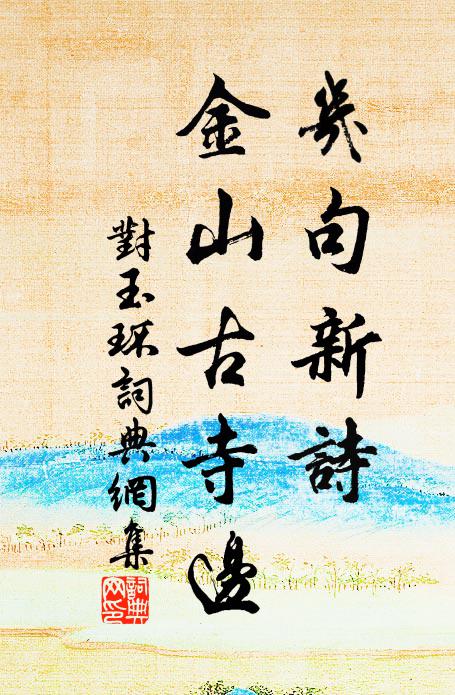 幾句新詩
金山古寺邊
對玉环詞典網集
詞典